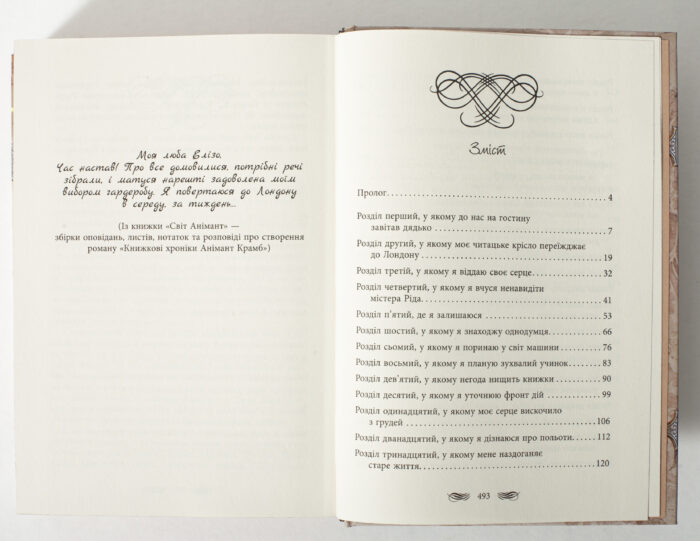 Моя люба Елізо,
Час настав! Про все домовилися, потрібні речі
зібрали, і матуся нарешті задоволена моїм
вибором гардеробу. Я повертаюся до Лондону
в середу, за тиждень...
(Із книжки «Світ Анімант» —
збірки оповідань, листів, нотаток та розповіді про створення
роману «Книжкові хроніки Анімант Крамб»)
Зміст
Пролог. 4
Розділ перший, у якому до нас на гостину
завітав дядько 7
Розділ другий, у якому моє читацьке крісло переїжджає
до Лондону 19
Розділ третій, у якому я віддаю своє серце. 32
Розділ четвертий, у якому я вчуся ненавидіти
містера Ріда. 41
Розділ п'ятий, де я залишаюся 53
Розділ шостий, у якому я знаходжу однодумця. 66
Розділ сьомий, у якому я поринаю у світ машини 76
Розділ восьмий, у якому я планую зухвалий учинок 83
Розділ дев'ятий, у якому негода нищить книжки 90
Розділ десятий, у якому я уточнюю фронт дій 99
Розділ одинадцятий, у якому моє серце вискочило
з грудей 106
Розділ дванадцятий, у якому я дізнаюся про польоти. 112
Розділ тринадцятий, у якому мене наздоганяє
старе життя. 120
493